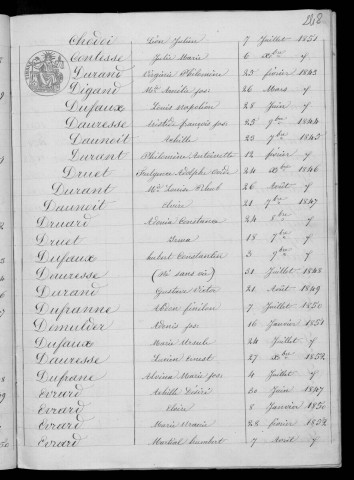 248.
Chedoi Léon Julien 7 Juillet 1851
Contesse Julie Marie 6 Xbre "
Durand Virginie Philomène 23 février 1843
Digand Mie Amélie jos. 26 Mars "
Dufaux Louis Napoléon 28 Juin "
Dauresse françois jos. 25 9bre 1844
Daunoit Achille 23 7bre 1845
Durant Philomène Antoinette 12 février "
Druet Adolphe 24 Xbre 1846
Durant Mie Louise 26 Août "
Daunoit Claire 21 7bre 1847
Druard Constance 24 8bre "
Druet Irma 18 7bre "
Dufaux hubert Constantin 3 9bre "
Dauresse (Né sans vie) 31 Juillet 1848
Durand Gustave Victor 21 Août 1849
Dufranne 7 Juillet 1850
Demulder Denis jos. 16 Janvier 1851
Dufaux Marie Ursule 24 Juillet "
Dauresse Lucien Ernest 27 Xbre 1852
Dufrane Alvina Marie jos. 4 Juillet "
Evrard Achille Désiré 30 Juin 1847
Evrard Claire 8 Janvier 1850
Evrard Marie 28 février 1852
Evrard Martial humbert 7 Août "